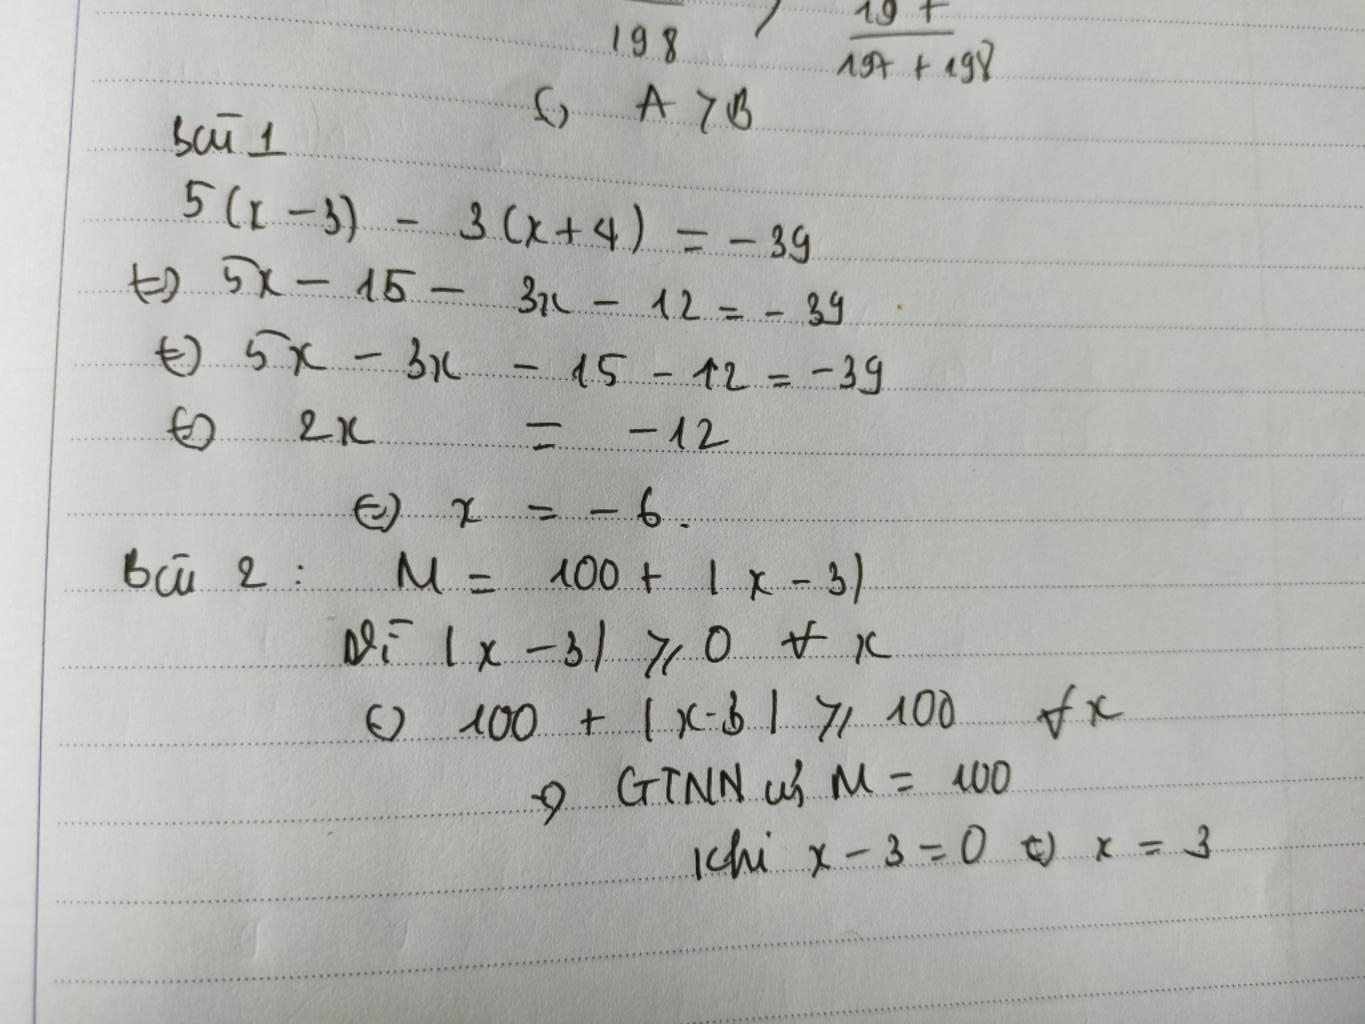 198 > 197
197 + 198
⇔ A > B
Bài 1
5(x - 3) - 3(x + 4) = - 39
⇔ 5x - 15 - 3x - 12 = - 39
⇔ 5x - 3x - 15 - 12 = - 39
⇔ 2x = - 12
⇔ x = - 6.
Bài 2 : M = 100 + |x - 3|
Vì |x - 3| ⩾ 0 ∀ x
⇔ 100 + |x - 3| ⩾ 100 ∀ x
⇒ GTNN của M = 100
khi x - 3 = 0 ⇔ x = 3